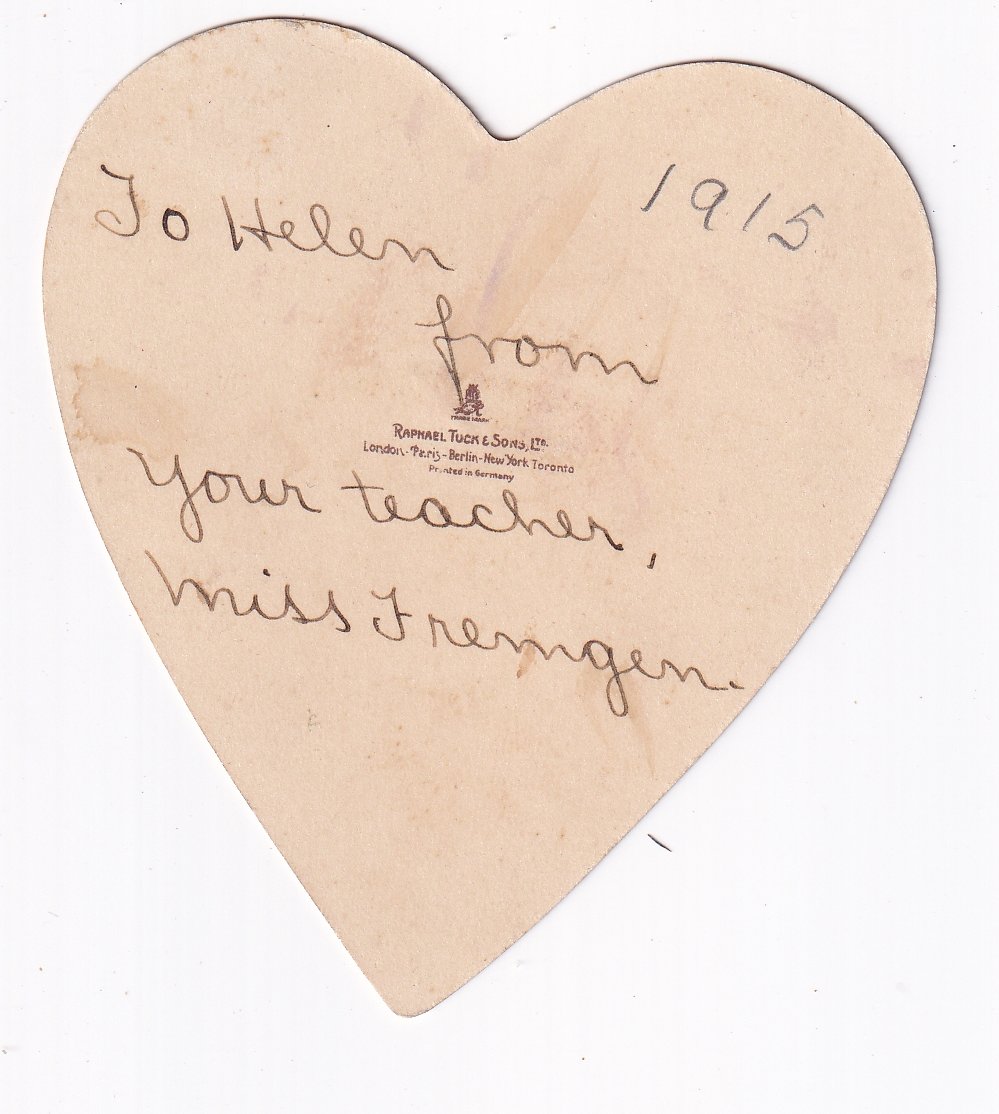 1915
To Helen
from
TRADE MARK
RAPHAEL TUCK & SONS, LTD.
London - Paris - Berlin - New York Toronto
Printed in Germany
your teacher,
Miss Fremgen.